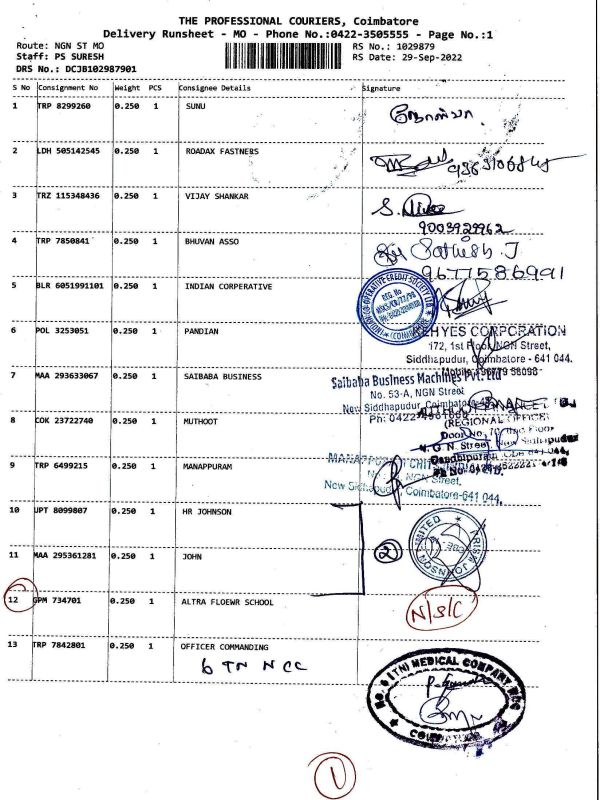 THE PROFESSIONAL COURIERS, Coimbatore
Delivery Runsheet - MO - Phone No.:0422-3505555 - Page No.:1
Route: NGN ST MO RS No.: 1029879
Staff: PS SURESH RS Date: 29-Sep-2022
DRS No.: DCJB102987901
S No Consignment No Weight PCS Consignee Details Signature
1 TRP 8299260 0.250 1 SUNU
2 LDH 505142545 0.250 1 ROADAX FASTNERS
3 TRZ 115348436 0.250 1 VIJAY SHANKAR
9003929962
4 TRP 7850841 0.250 1 BHUVAN ASSO
Sathish J
9677586991
5 BLR 6051991101 0.250 1 INDIAN CORPERATIVE
6 POL 3253051 0.250 1 PANDIAN
172, 1st Floor, NGN Street,
Siddhapudur, Coimbatore - 641 044.
7 MAA 293633067 0.250 1 SAIBABA BUSINESS
Saibaba Business Machines Pvt. Ltd
No. 53-A, NGN Street
New Siddhapudur, Coimbatore
8 COK 23722740 0.250 1 MUTHOOT
(REGIONAL OFFICE)
9 TRP 6499215 0.250 1 MANAPPURAM
NGN Street,
Coimbatore-641 044.
10 UPT 8099807 0.250 1 HR JOHNSON
11 MAA 295361281 0.250 1 JOHN
2
12 GPM 734701 0.250 1 ALTRA FLOEWR SCHOOL
N/S/C
13 TRP 7842801 0.250 1 OFFICER COMMANDING
6 TN NCC
No. 6 (TN) MEDICAL COMPANY NCC
COIMBATORE
1